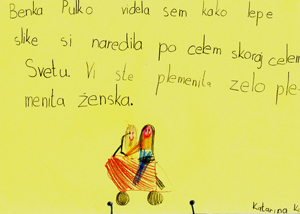 Benka Pulko videla sem kako lepe
slike si naredila po celem skoraj celem
Svetu. Vi ste plemenita zelo ple-
menita ženska.
Katarina K